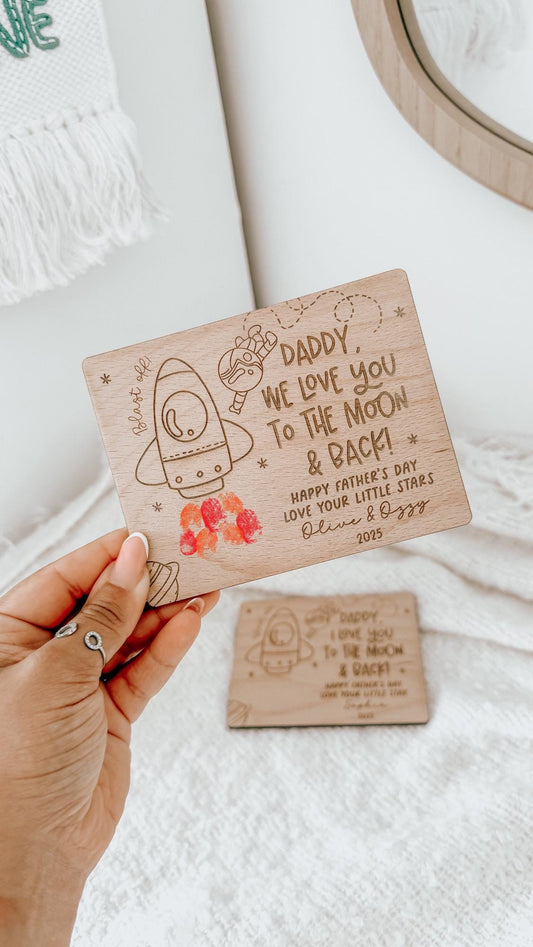 VE
Blast off!
DADDY,
WE LOVE YOU
TO THE MOON
& BACK!
HAPPY FATHER'S DAY
LOVE YOUR LITTLE STARS
Olive & Ozzy
2025
DADDY,
I LOVE YOU
TO THE MOON
& BACK!
HAPPY FATHER'S DAY
LOVE YOUR LITTLE STAR
Sophie
2025